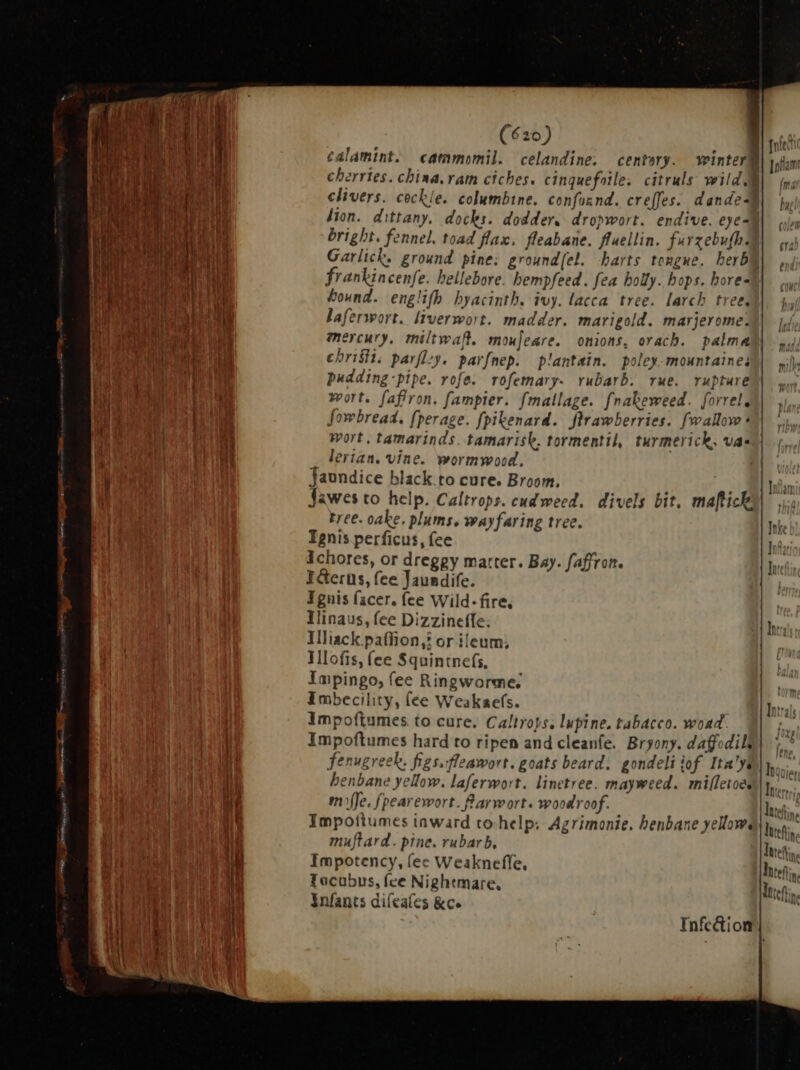 (620)
calamint. cammomil. celandine. centory. winter
cherries. china. ram ciches. cinquefoile. citruls wild.
clivers. cockle. columbine. confound. creſſes. dande-
lion. dittany. docks. dodder. dropwort. endive. eye-
bright. fennel. toad flax. fleabane. fluellin. furzebuſh.
Garlick. ground pine. groundſel. harts tongue. herb
frankincenſe. hellebore. hempſeed. ſea holly. hops. hore-
hound. engliſh hyacinth. ivy. lacca tree. larch tree.
laſerwort. liverwort. madder. marigold. marjerome.
mercury. miltwaſt. mouſeare. onions. orach. palma
chriſti. parſley. parſnep. plantain. poley mountaine.
pudding-pipe. roſe. roſemary. rubarb. rue. rupture
wort. ſaffron. ſampier. ſmallage. ſnakeweed. ſorrel.
ſowbread. ſperage. ſpikenard. ſtrawberries. ſwallow
wort. tamarinds. tamarisk. tormentil, turmerick. va-
lerian. vine. wormwood.
Jaundice black to cure. Broom.
Jawes to help. Caltrops. cudweed. divels bit. maſtick
tree. oake. plums. wayfaring tree.
Ignis perſicus, ſee
Ichores, or dreggy matter. Bay. ſaffron.
Icterus, ſee Jaundiſe.
Ignis ſacer. ſee Wild-fire.
Ilinaus, ſee Dizzineſſe.
Illiack paſſion, or ileum.
Illoſis, ſee Squintneſs.
Impingo, ſee Ringworme.
Imbecility, ſee Weakneſs.
Impoſtumes to cure. Caltrops. lupine. tabacco. woad.
Impoſtumes hard to ripen and cleanſe. Bryony. daffodil
fenugreek. figs. fleawort. goats beard. gondeli of Italye
henbane yellow. laſerwort. linetree. mayweed. miſſetoe
moſſe. ſpearewort. ſtarwort. woodroof.
Impoſtumes inward to help. Agrimonie. henbane yellow
muſtard. pine. rubarb.
Impotency, ſee Weakneſſe.
Incubus, ſee Nightmare.
Infants diſeaſes &c.
Infection